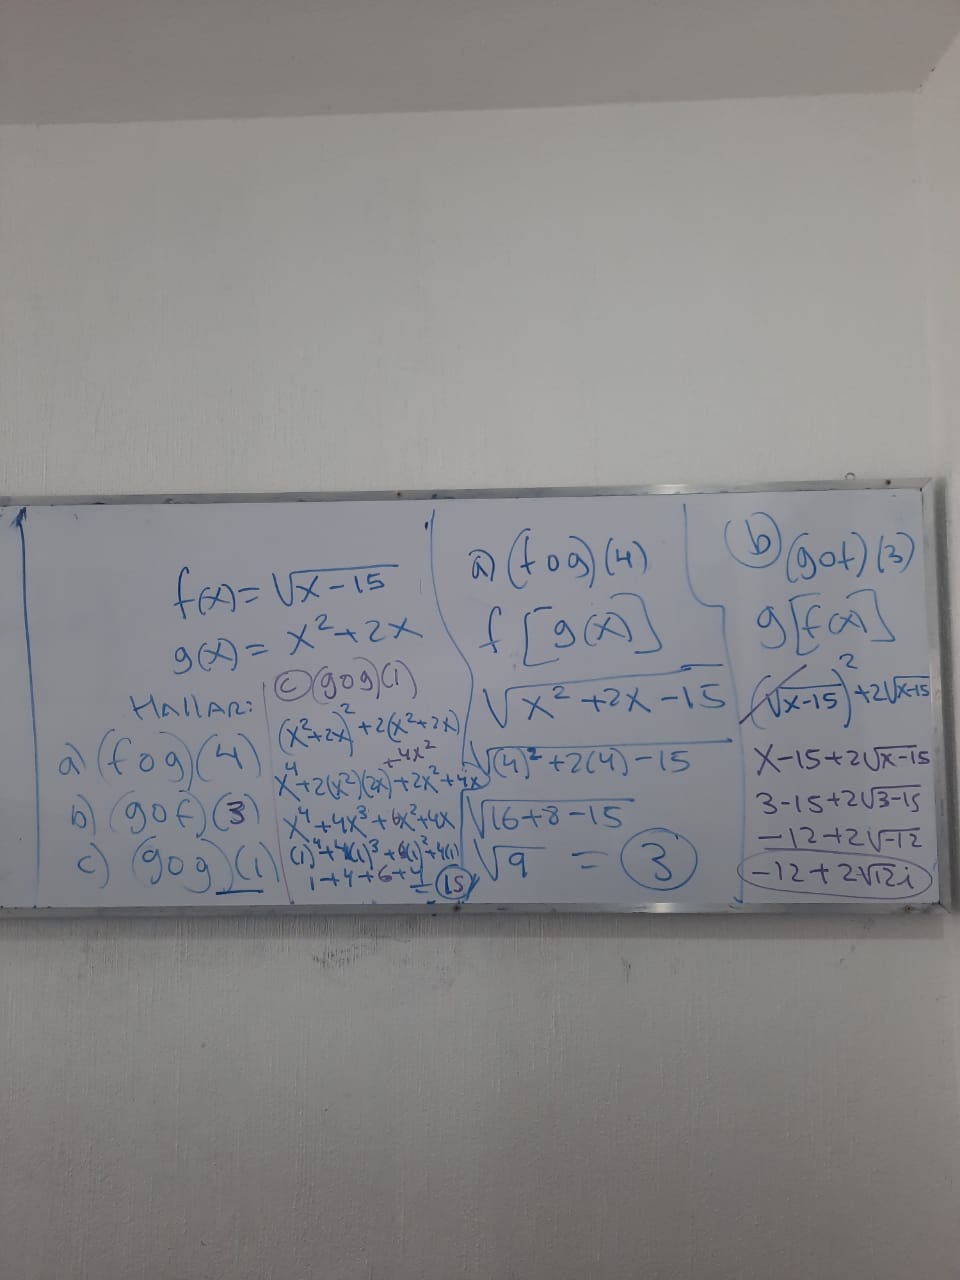 f(x) = √x-15
g(x) = x² + 2x
Hallar:
a) (fog)(4)
b) (gof)(3)
c) (gog)(1)
c) (gog)(1)
(x²+2x)² + 2(x²+2x)
+4x²
x⁴+2(x²)(2x)+2x²+4x
x⁴+4x³+6x²+4x
(1)⁴+4(1)³+6(1)²+4(1)
1+4+6+4 = 15
a) (fog)(4)
f[g(x)]
√x²+2x-15
√(4)²+2(4)-15
√16+8-15
√9 = 3
b) (gof)(3)
g[f(x)]
(√x-15)²+2√x-15
x-15+2√x-15
3-15+2√3-15
-12+2√-12
-12+2√12i